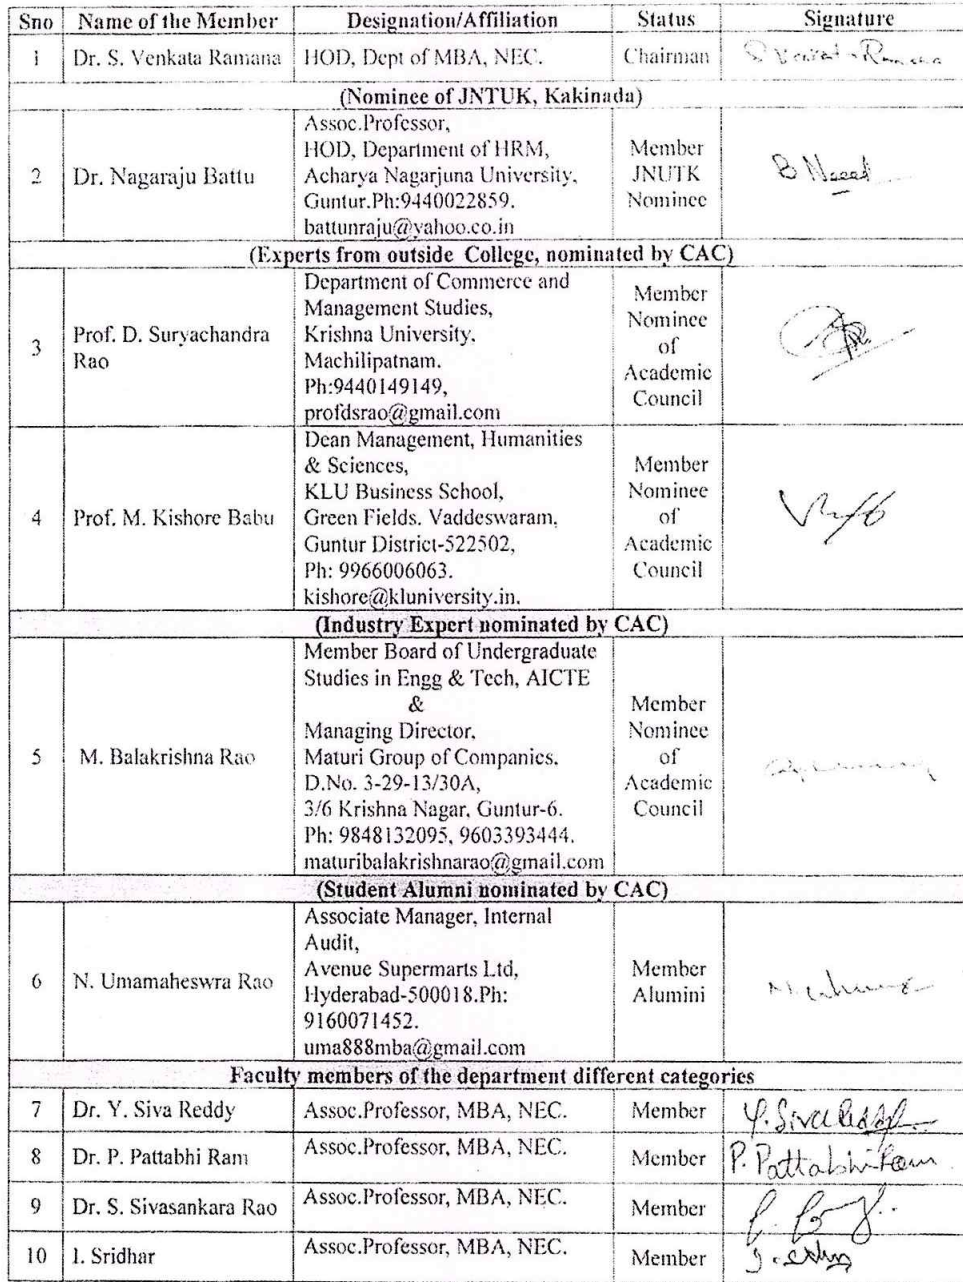 Sno Name of the Member Designation/Affiliation Status Signature
1 Dr. S. Venkata Ramana HOD, Dept of MBA, NEC. Chairman S Venkata Ramana
(Nominee of JNTUK, Kakinada)
2 Dr. Nagaraju Battu
Assoc.Professor,
HOD, Department of HRM,
Acharya Nagarjuna University,
Guntur.Ph:9440022859.
battunraju@yahoo.co.in
Member
JNUTK
Nominee
(Experts from outside College, nominated by CAC)
3 Prof. D. Suryachandra
Rao
Department of Commerce and
Management Studies,
Krishna University,
Machilipatnam.
Ph:9440149149,
profdsrao@gmail.com
Member
Nominee
of
Academic
Council
4 Prof. M. Kishore Babu
Dean Management, Humanities
& Sciences,
KLU Business School,
Green Fields. Vaddeswaram,
Guntur District-522502,
Ph: 9966006063.
kishore@kluniversity.in.
Member
Nominee
of
Academic
Council
(Industry Expert nominated by CAC)
5 M. Balakrishna Rao
Member Board of Undergraduate
Studies in Engg & Tech, AICTE
&
Managing Director,
Maturi Group of Companies.
D.No. 3-29-13/30A,
3/6 Krishna Nagar, Guntur-6.
Ph: 9848132095, 9603393444.
maturibalakrishnarao@gmail.com
Member
Nominee
of
Academic
Council
(Student Alumni nominated by CAC)
6 N. Umamaheswra Rao
Associate Manager, Internal
Audit,
Avenue Supermarts Ltd,
Hyderabad-500018.Ph:
9160071452.
uma888mba@gmail.com
Member
Alumini
Faculty members of the department different categories
7 Dr. Y. Siva Reddy Assoc.Professor, MBA, NEC. Member Y. Siva Reddy
8 Dr. P. Pattabhi Ram Assoc.Professor, MBA, NEC. Member P. Pattabhi Ram
9 Dr. S. Sivasankara Rao Assoc.Professor, MBA, NEC. Member
10 I. Sridhar Assoc.Professor, MBA, NEC. Member